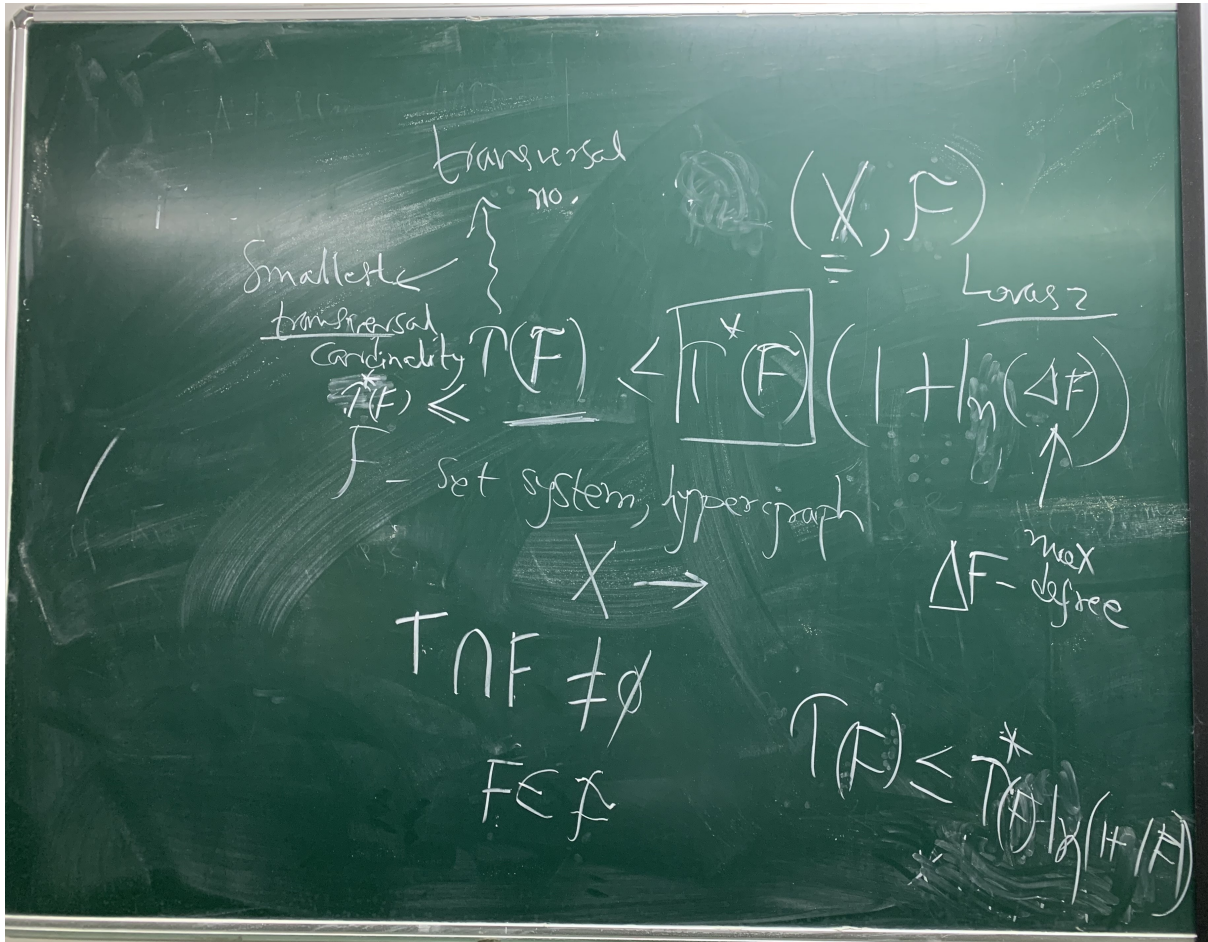 transversal
no.
(X, F)
Smallest
transversal
Cardinality
Lovasz
τ(F) < τ*(F) (1 + ln(ΔF))
τ*(F) ≤
F - set system, hypergraph
X →
ΔF - max
defree
T ∩ F ≠ ∅
F ∈ F
τ(F) ≤ τ*(F) ln(1+|F|)